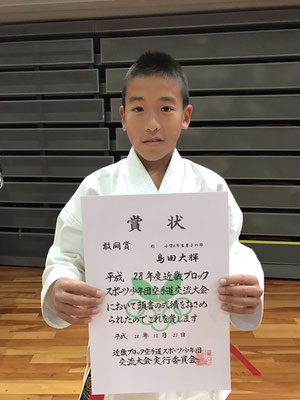 賞状
敢闘賞
型 小学5年生男子の部
島田大輝
平成 28年度近畿ブロック
スポーツ少年団空手道交流大会
において頭書の成績をおさめ
られたのでこれを賞します
平成 28年12月23日
近畿ブロック空手道スポーツ少年団
交流大会実行委員会